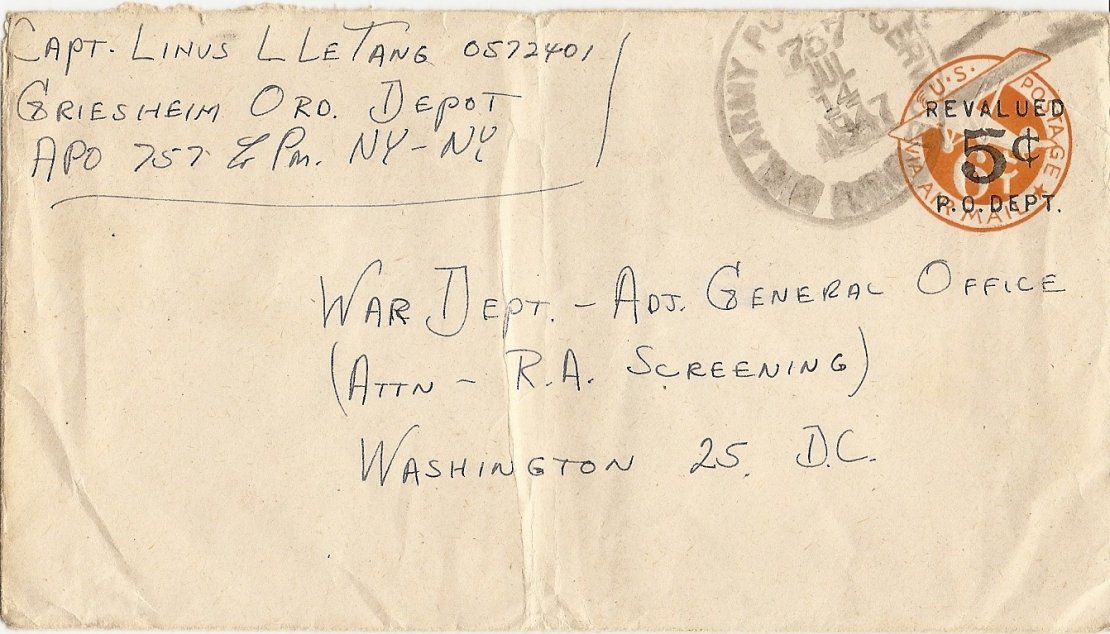 CAPT. LINUS L LETANG 0572401
GRIESHEIM ORD. DEPOT
APO 757 % PM. NY-NY
U.S. POSTAGE
REVALUED
5¢
P.O. DEPT.
VIA AIR MAIL
6
U.S. ARMY
757
1947
WAR DEPT. - ADJ. GENERAL OFFICE
(ATTN - R.A. SCREENING)
WASHINGTON 25, D.C.